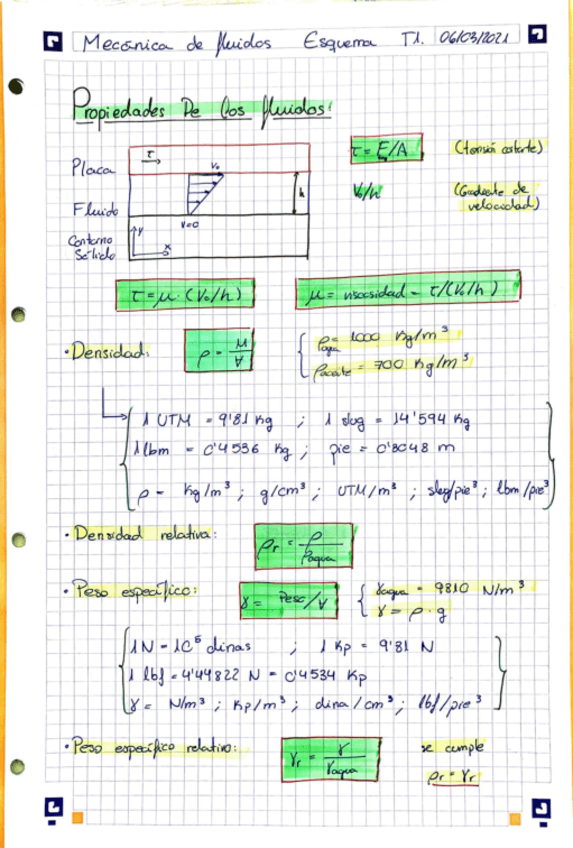 Mecánica de fluidos Esquema T1. 06/03/2021
Propiedades De los fluidos:
Placa
τ
V₀
h
τ = F/A (tensión cortante)
Fluido
V=0
V₀/h (Gradiente de velocidad)
Contorno Sólido
y
x
τ = μ · (V₀/h)
μ = viscosidad = τ/(V₀/h)
· Densidad: ρ = M/V
ρagua = 1000 Kg/m³
ρaceite = 700 Kg/m³
1 UTM = 9'81 Kg ; 1 slug = 14'594 Kg
1 lbm = 0'4536 Kg ; pie = 0'3048 m
ρ = Kg/m³ ; g/cm³ ; UTM/m³ ; slug/pie³ ; lbm/pie³
· Densidad relativa: ρr = ρ/ρagua
· Peso específico: γ = Peso/V
γagua = 9810 N/m³
γ = ρ · g
1N = 10⁵ dinas ; 1 Kp = 9'81 N
1 lbf = 4'44822 N = 0'4534 Kp
γ = N/m³ ; Kp/m³ ; dina/cm³ ; lbf/pie³
· Peso específico relativo: γr = γ/γagua
se cumple
ρr = γr